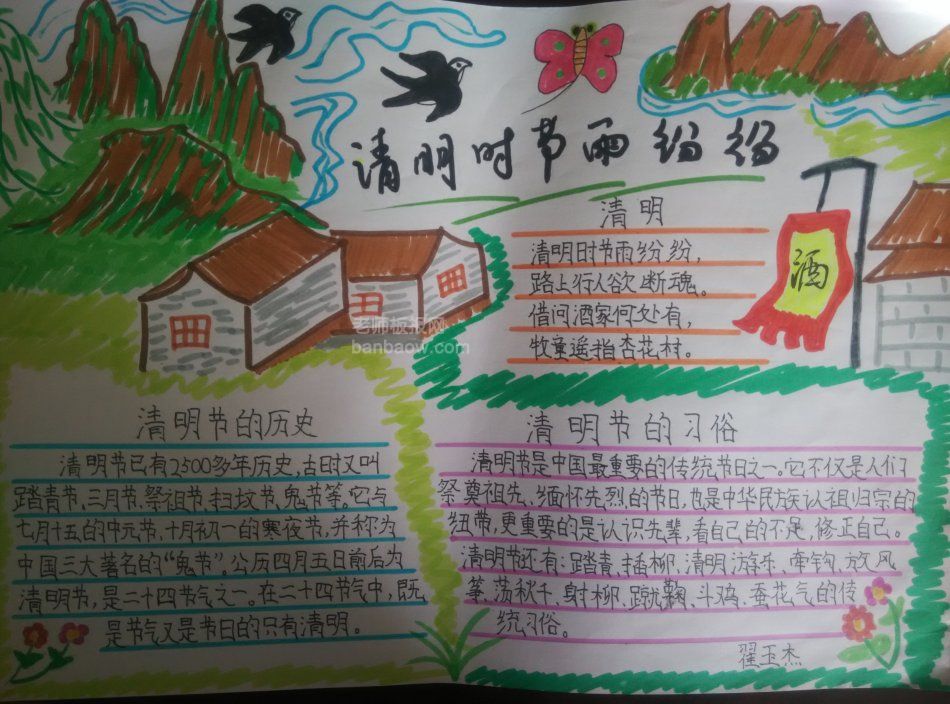 清明时节雨纷纷
清明
清明时节雨纷纷，
路上行人欲断魂。
借问酒家何处有，
牧童遥指杏花村。
酒
老师板报网
banbaow.com
清明节的历史
清明节已有2500多年历史，古时又叫
踏青节、三月节、祭祖节、扫坟节、鬼节等。它与
七月十五的中元节、十月初一的寒夜节，并称为
中国三大著名的“鬼节”。公历四月五日前后为
清明节，是二十四节气之一。在二十四节气中，既
是节气又是节日的只有清明。
清明节的习俗
清明节是中国最重要的传统节日之一。它不仅是人们
祭奠祖先、缅怀先烈的节日，也是中华民族认祖归宗的
纽带，更重要的是认识先辈，看自己的不足，修正自己。
清明节还有：踏青、插柳、清明、游乐、牵钩、放风
筝、荡秋千、射柳、蹴鞠、斗鸡、蚕花气的传
统习俗。
翟玉杰